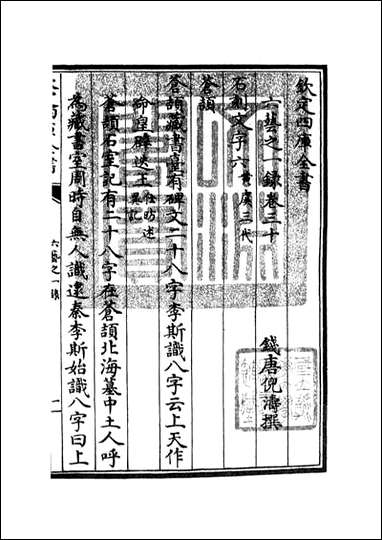 欽定四庫全書
六藝之一録卷三十
錢唐倪濤撰
石刻文字六 黄虞三代
蒼頡
蒼頡藏書臺有碑文二十八字李斯識八字云上天作
命皇辟迭王 任昉述異記
蒼頡石室記有二十八字在蒼頡北海墓中土人呼
為藏書室周時自無人識逮秦李斯始識八字曰上
六藝之一録